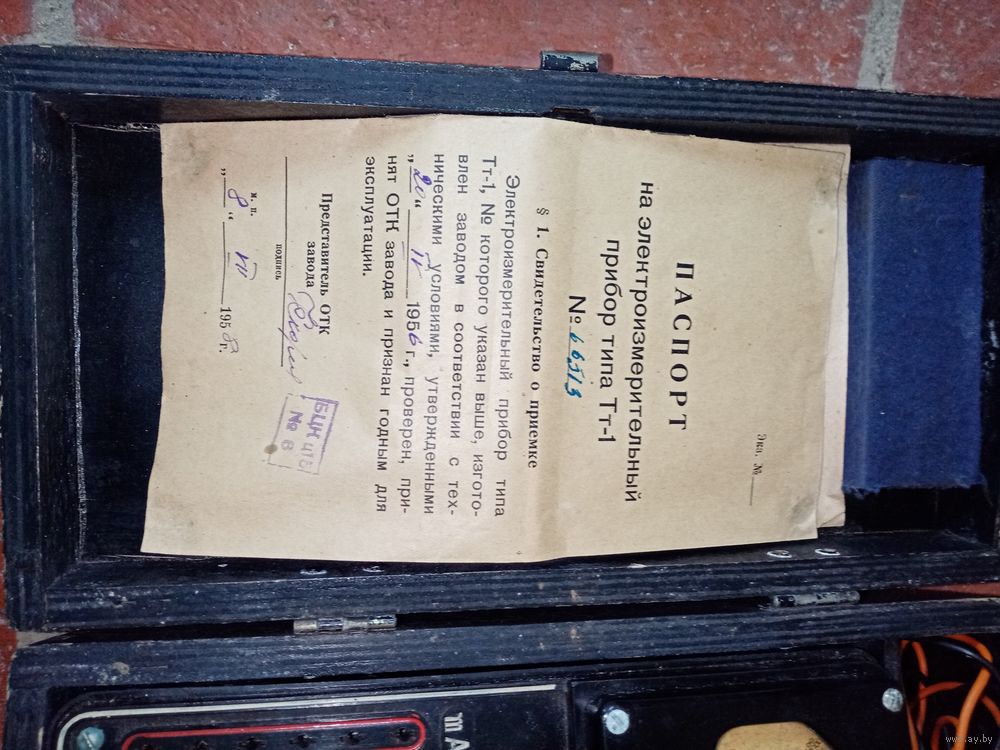 Экз. №
ПАСПОРТ
на электроизмерительный
прибор типа Тт-1
№ 66513
§ 1. Свидетельство о приемке
Электроизмерительный прибор типа
Тт-1, № которого указан выше, изгото-
влен заводом в соответствии с тех-
ническими условиями, утвержденными
„20“ IV 1956 г., проверен, при-
нят ОТК завода и признан годным для
эксплуатации.
Представитель ОТК
завода
подпись
м. п.
„8“ VII 1958 г.
БЦИ
№ 8
mA
www.ay.by